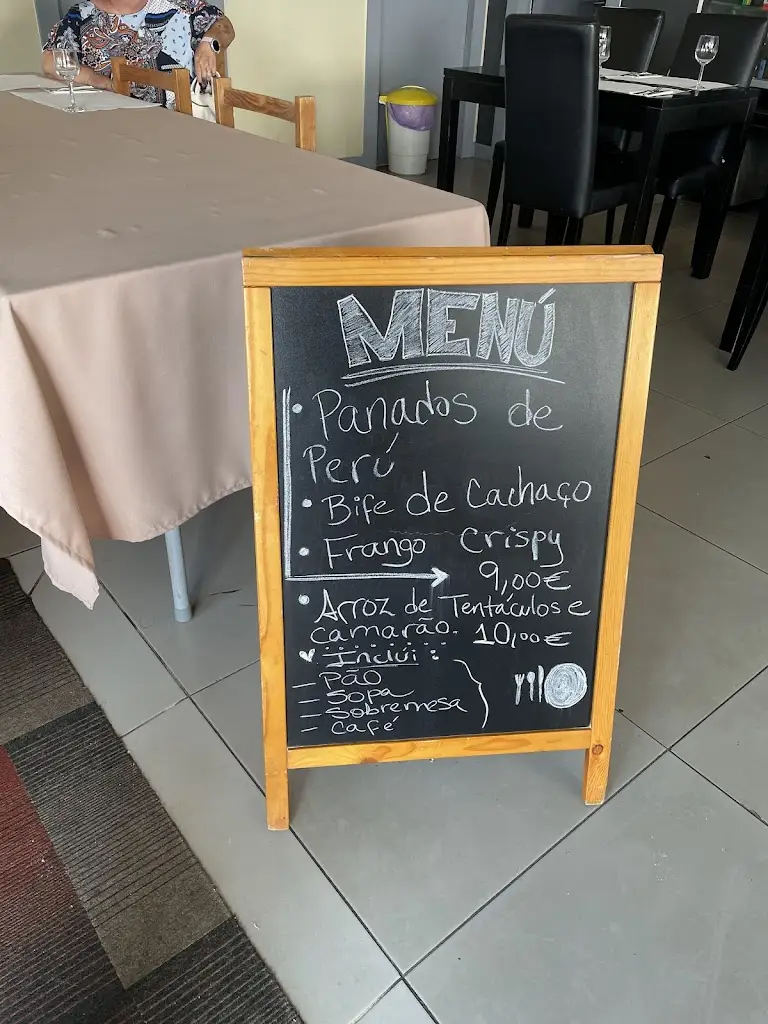 MENÚ
• Panados de
Perú
• Bife de Cachaço
• Frango crispy
9,00€
• Arroz de Tentáculos e
camarão. 10,00€
♥ Inclúi :
– Pão
– Sopa
– Sobremesa
– Café